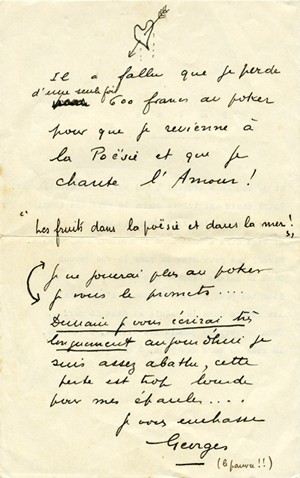 Il a fallu que je perde
d'une seule fois 600 francs au poker
pour que je revienne à
la Poësie et que je
chante l'Amour !
"Les fruits dans la poësie et dans la mer !"
Je ne jouerai plus au poker
je vous le promets....
Demain je vous écrirai très
longuement aujourd'hui je
suis assez abattu, cette
perte est trop lourde
pour mes épaules....
Je vous embrasse
Georges
(le pauvre !!)